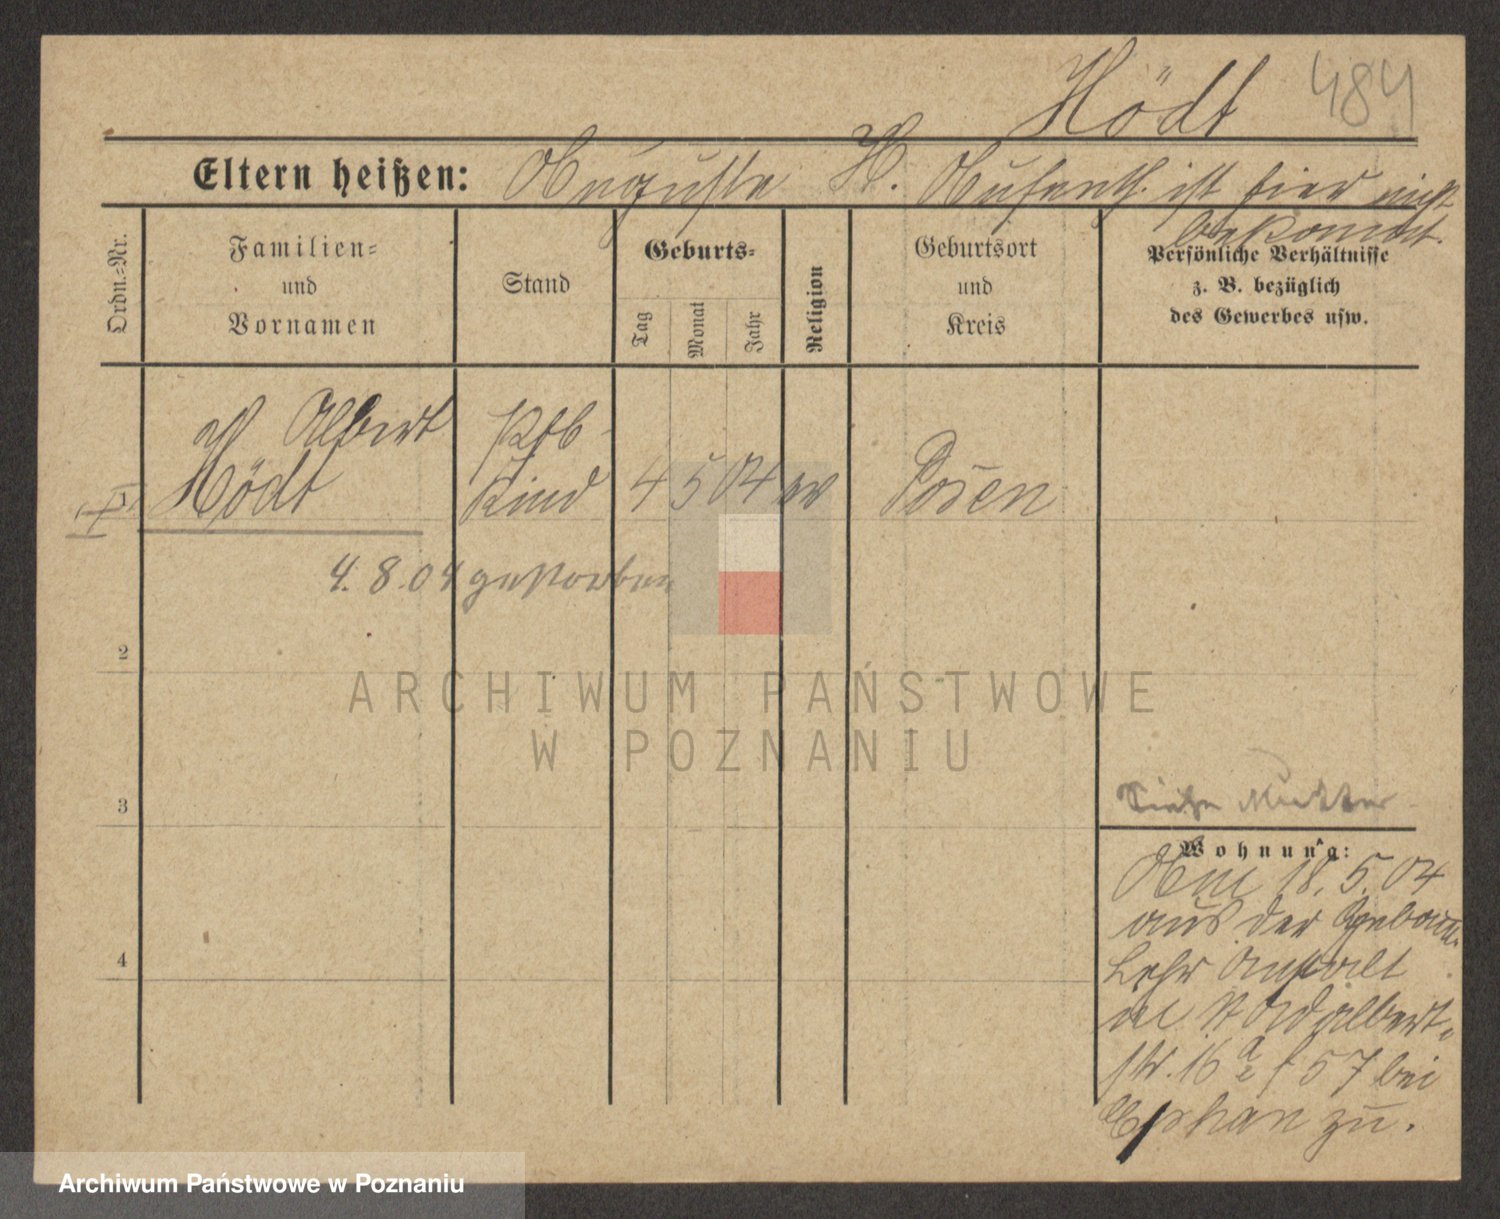 Hödt 484
Eltern heißen: Auguste H. Aufenth. ist hier nicht
bekannt.
Ordn.=Nr.
Familien=
und
Vornamen
Stand
Geburts=
Tag
Monat
Jahr
Religion
Geburtsort
und
Kreis
Persönliche Verhältnisse
z. B. bezüglich
des Gewerbes usw.
1
Albert
Hödt
Kind
4 5 04 ev
Posen
4. 8. 04 gestorben
2
3
4
Siehe Mutter
Wohnung:
Am 18. 5. 04
aus der Hebam.
Lehr Anstalt
str. 16 57 bei
zu.
ARCHIWUM PAŃSTWOWE
W POZNANIU
Archiwum Państwowe w Poznaniu